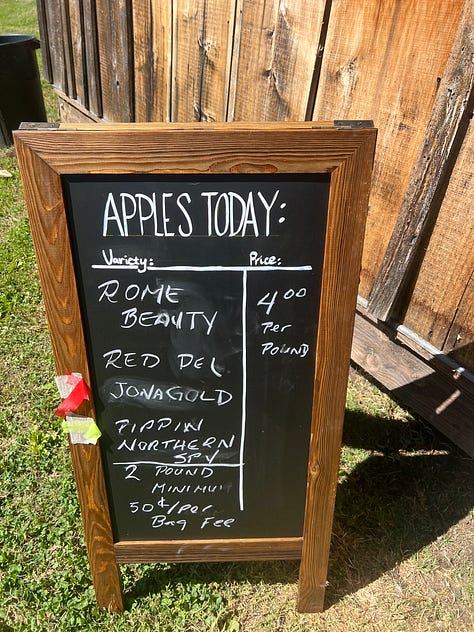 APPLES TODAY:
Variety: Price:
ROME
BEAUTY
4⁰⁰
Per
POUND
RED DEL
JONAGOLD
PIPPIN
NORTHERN
SPY
2 POUND
MINIMU
50¢/Per
Bag Fee